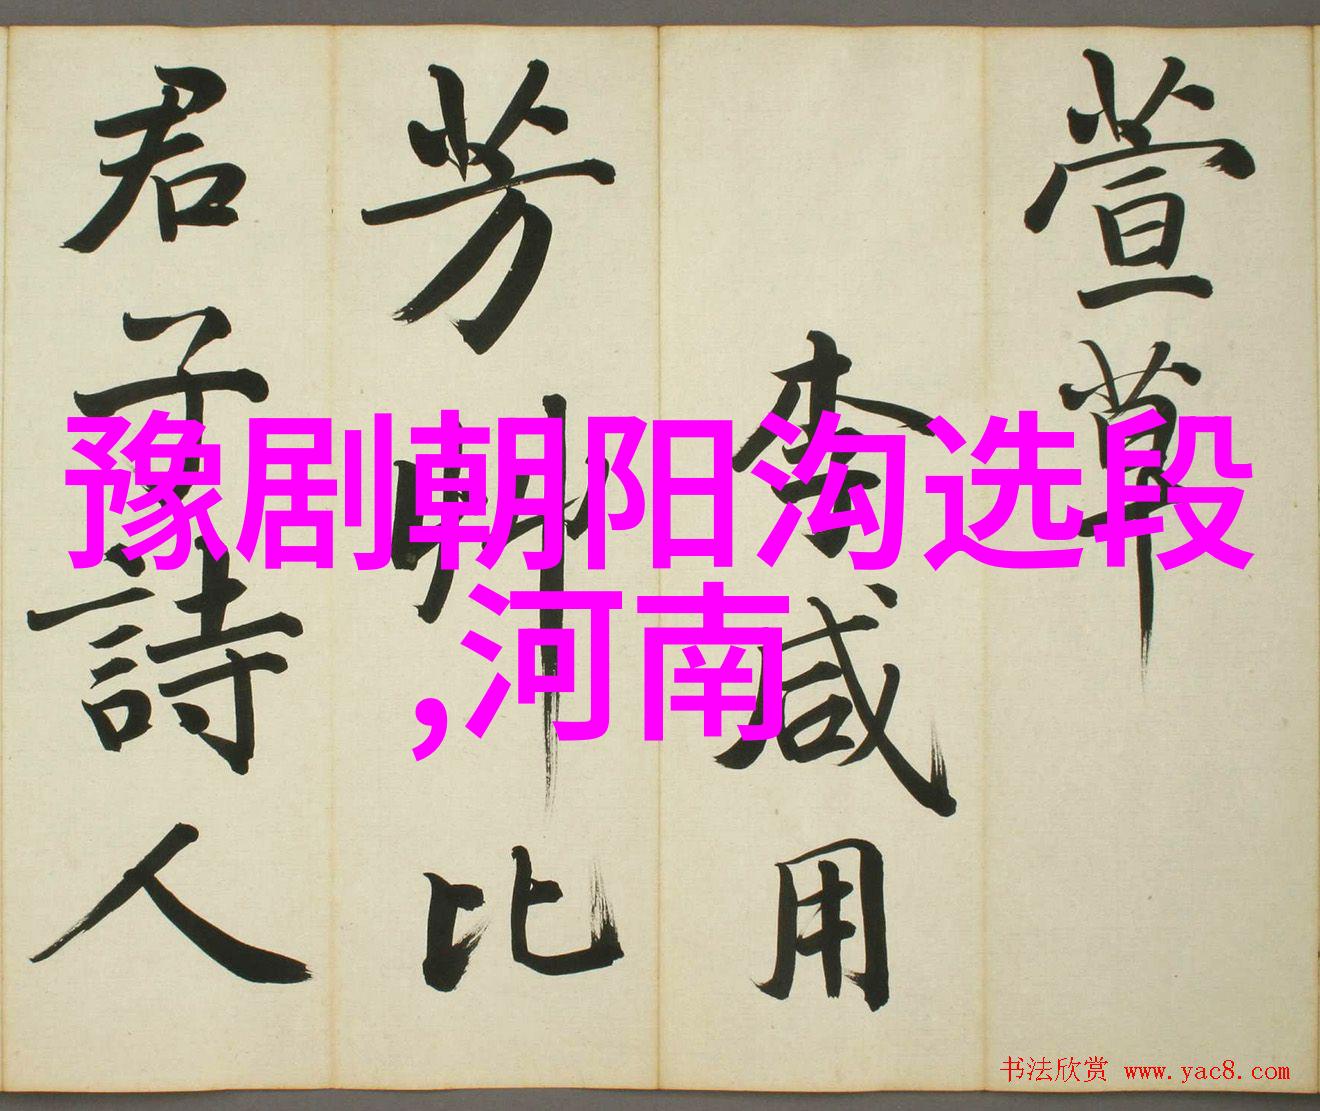 萱草
李咸用
芳艸比
君子詩人
豫剧朝阳沟选段
,河南
书法欣赏 www.yac8.com